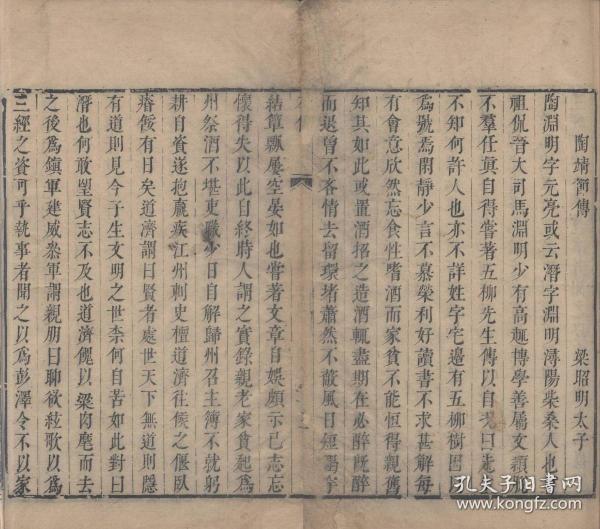 陶靖節傳　梁昭明太子
陶淵明字元亮或云潛字淵明潯陽柴桑人也
祖侃晉大司馬淵明少有高趣博學善屬文穎
不羣任眞自得嘗著五柳先生傳以自況曰先
不知何許人也亦不詳姓字宅邊有五柳樹因
爲號焉閑靜少言不慕榮利好讀書不求甚解每
有會意欣然忘食性嗜酒而家貧不能恒得親舊
知其如此或置酒招之造酒輒盡期在必醉旣醉
而退曾不吝情去留環堵蕭然不蔽風日短褐穿
結簞瓢屢空晏如也嘗著文章自娛頗示己志忘
懷得失以此自終時人謂之實錄親老家貧起爲
州祭酒不堪吏職少日自解歸州召主簿不就躬
耕自資遂抱羸疾江州刺史檀道濟往候之偃臥
瘠餒有日矣道濟謂曰賢者處世天下無道則隱
有道則見今子生文明之世柰何自苦如此對曰
潛也何敢望賢志不及也道濟饋以粱肉麾而去
之後爲鎭軍建威參軍謂親朋曰聊欲絃歌以爲
三徑之資可乎執事者聞之以爲彭澤令不以家
孔夫子旧书网
kongfz.com